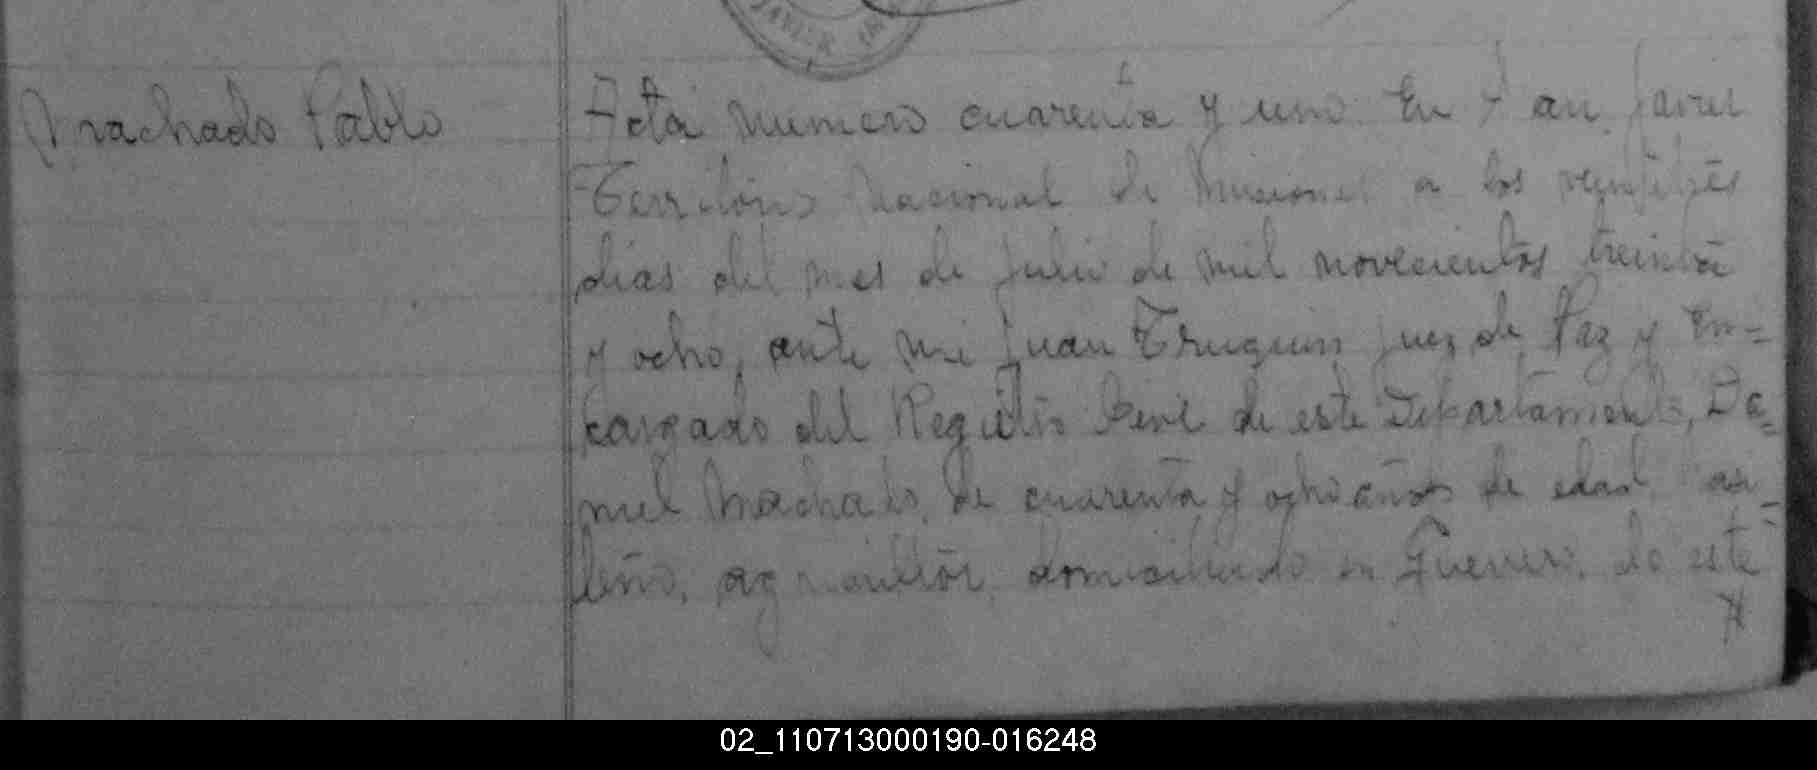 JAVIER
Machado Pablo
Acta numero cuarenta y uno. En San Javier
Territorio Nacional de Misiones a los veintitrés
dias del mes de Julio de mil novecientos treinta
y ocho, ante mi Juan Truquin Juez de Paz y En=
cargado del Registro Civil de este Departamento, Da=
niel Machado, de cuarenta y ocho años de edad,
leño, agricultor, domiciliado en Guerrero, de este
02_110713000190-016248